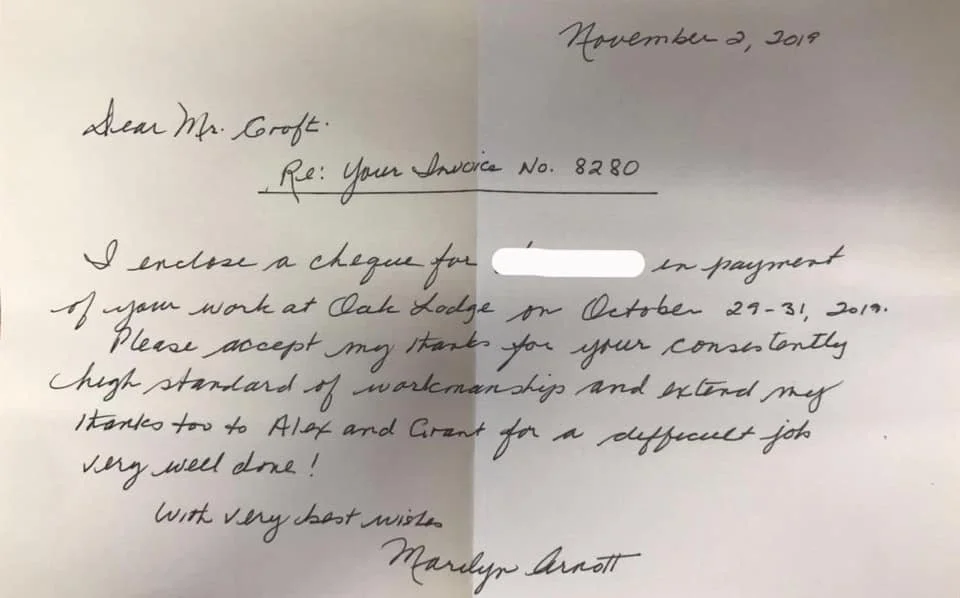 November 2, 2019
Dear Mr. Croft.
Re: Your Invoice No. 8280
I enclose a cheque for in payment
of your work at Oak Lodge on October 29-31, 2019.
Please accept my thanks for your consistently
high standard of workmanship and extend my
thanks too to Alex and Grant for a difficult job
very well done!
With very best wishes
Marilyn Arnott